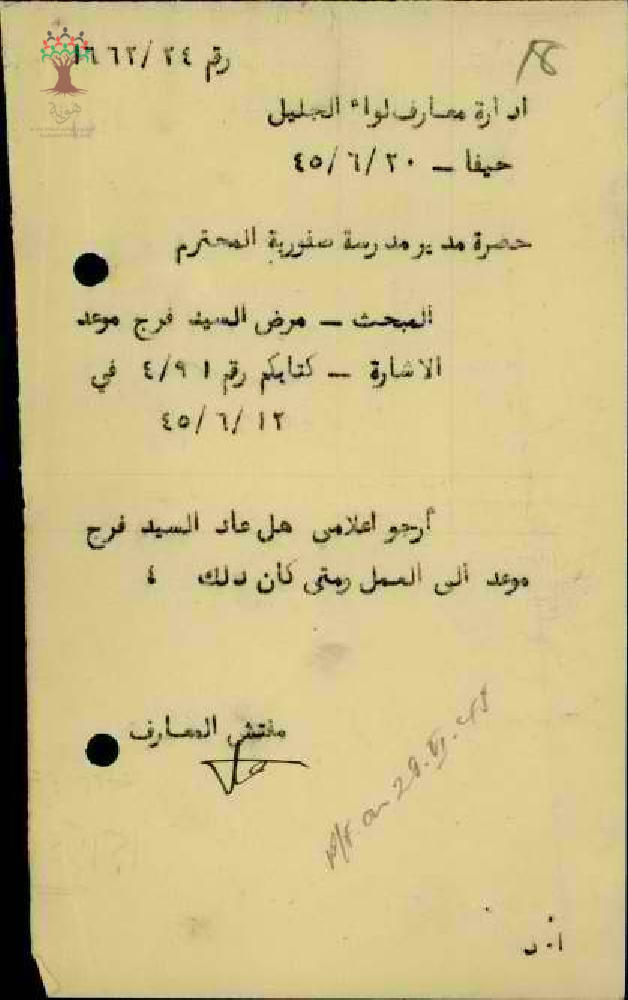 رقم ٢٤/ ١٦٦٢
ادارة معارف لواء الجليل
حيفا – ٢٠/ ٦/ ٤٥
حضرة مدير مدرسة صفورية المحترم
المبحث – مرض السيد فرج موعد
الاشارة – كتابكم رقم ٤/٩١ في
١٢/ ٦/ ٤٥
أرجو اعلامي هل عاد السيد فرج
موعد الى العمل ومتى كان ذلك ؟
مفتش المعارف
P/F on 28.VI.45
أ. د
هوية